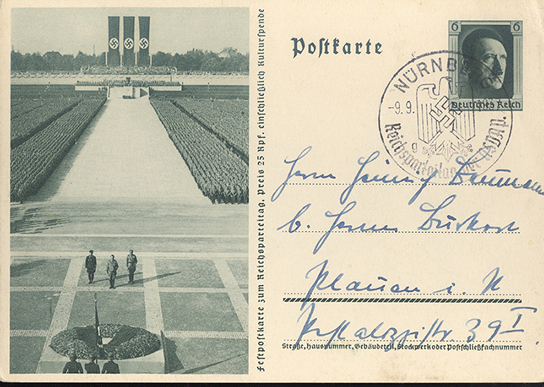 Festpostkarte zum Reichsparteitag. Preis 25 Rpf. einschließlich Kulturspende
Postkarte
6 6
Deutsches Reich
NÜRNBERG
-9.9.
Reichsparteitag der NSDAP
Herrn Heinz
b. Herrn Burkart
Plauen i. V.
Pestalozzistr. 39 I
Straße, Hausnummer, Gebäudeteil, Stockwerk oder Postschließfachnummer